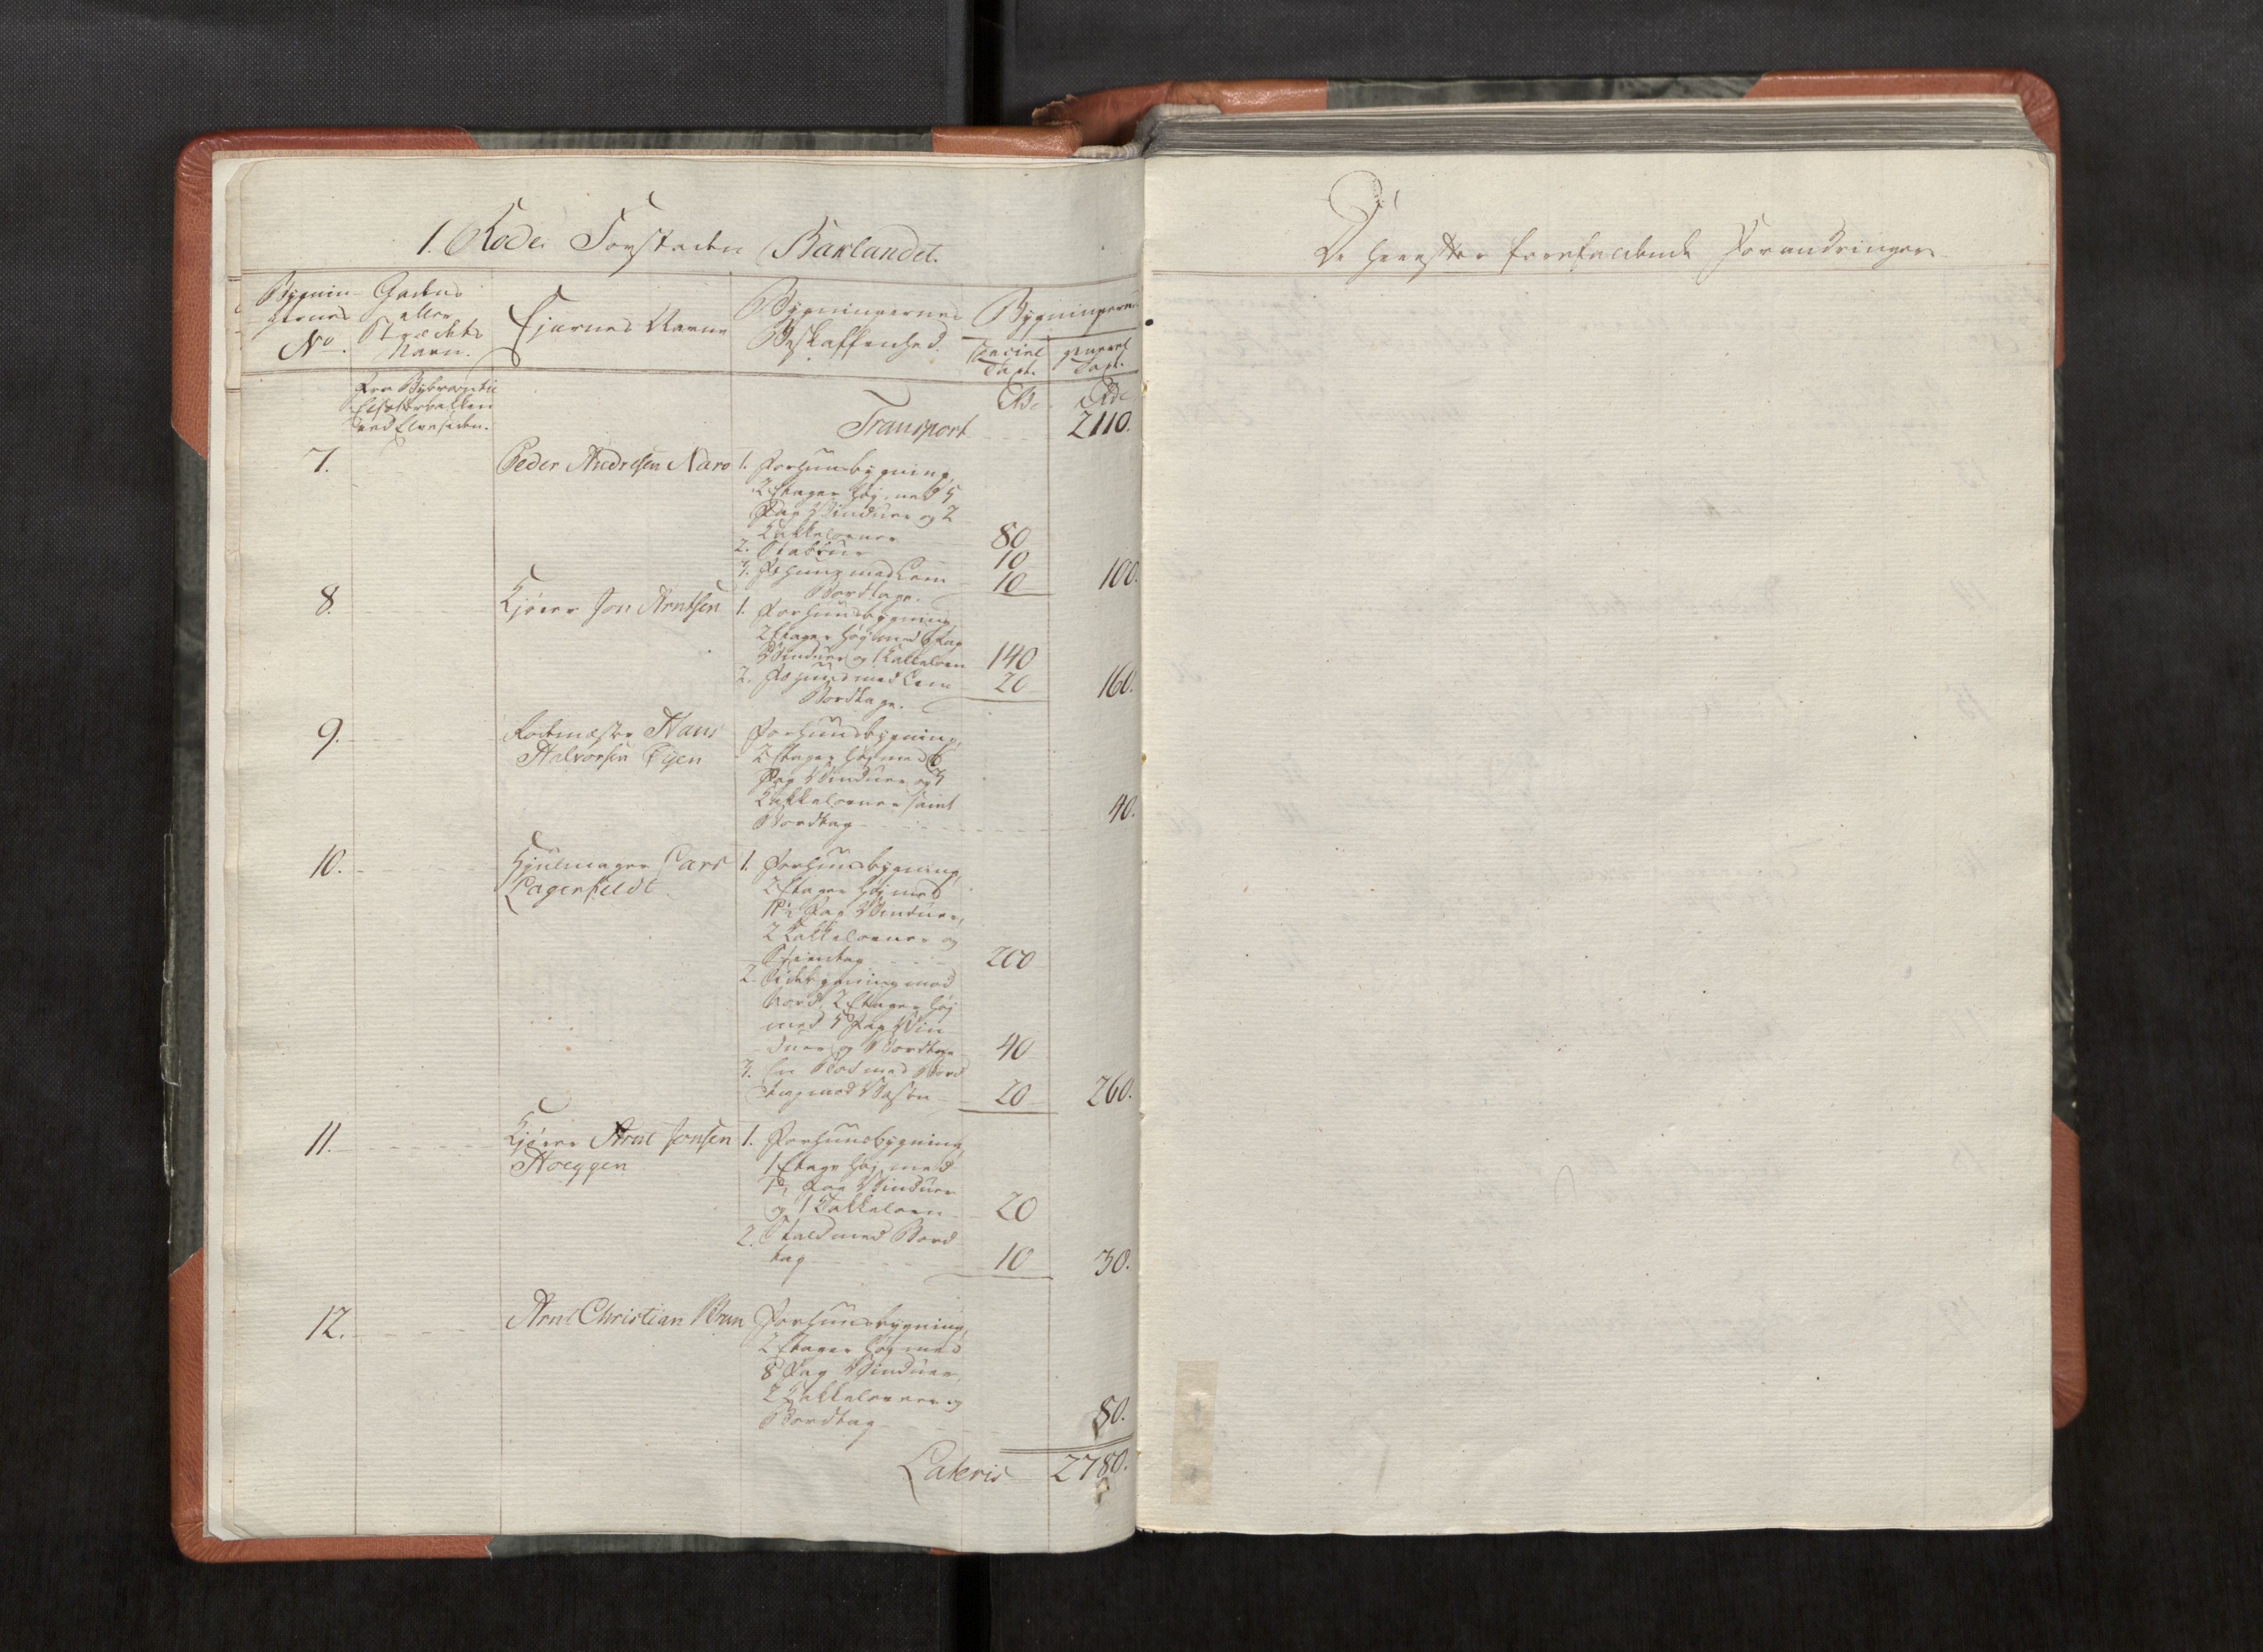 1. Rode Forstaden Baklandet.
Bygnin-
gernes
No.
Gadens
eller
Strædets
Navn.
Ejernes Navne
Bygningernes
Beskaffenhed.
Bygningernes
Special
Taxt.
general
Taxt.
Fra Bybroen til
ved Elvesiden.
Rdl
Rdl
Transport 2110.
7. Peder Andresen Naro 1. Forhuusbygning,
2 Etager høj, med 5
Fag Vinduer og 2
Kakkelovner 80
2. Stabbur 10
3. Fehuus med Lem
Bordtage. 10 100.
8. Kjører Jon Arntsen 1. Forhuusbygning,
2 Etager høj med 6 Fag
Vinduer og 1 Kakkelovn 140
2. Fehuus med Lem 20 160.
Bordtage.
9. Rodemæster Hans
Halvorsen Eijen
Forhuusbygning,
2 Etager høj med 6
Fag Vinduer og 3
Kakkelovner samt
Bordtag 40.
10. Hjulmager Lars
Lagerfeldt
1. Forhuusbygning,
2 Etager høj med
11½ Fag Vinduer,
2 Kakkelovner og
Steentag 200
2. Sidebygning mod
Nord, 2 Etager høj
med 5 Fag Vin-
duer og Bordtage 40
3. En Bod med Bord-
tag mod Vesten 20 260.
11. Kjører Arnt Jonsen
Hoeggen
1. Forhuusbygning,
1 Etage høj med
Fag Vinduer
og 1 Kakkelovn 20
2. Stald med Bord-
tag 10 30.
12. Arnt Christian Brun Forhuusbygning,
2 Etager høj med
8 Fag Vinduer,
2 Kakkelovner og
Bordtag 80.
Lateris 2780.
De herefter forefaldende Forandringer